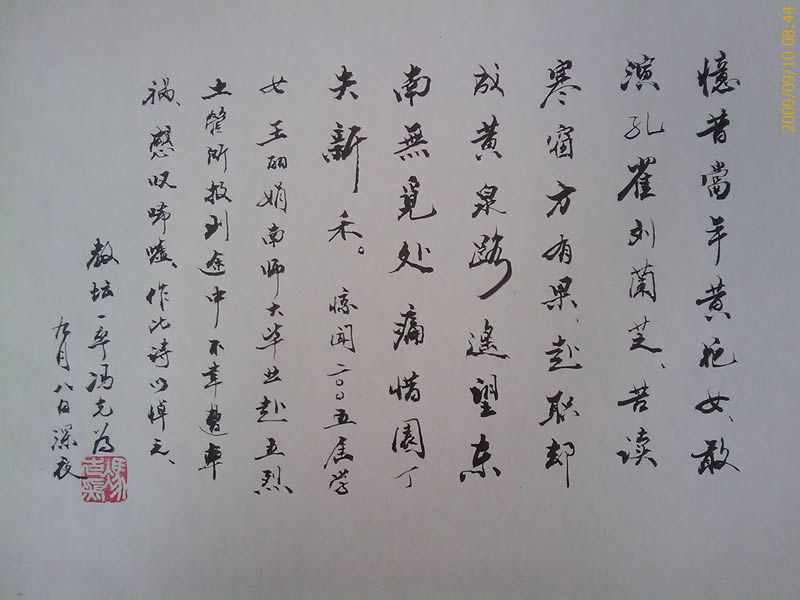 憶昔當年黄花女、敢
演孔雀刘蘭芝、苦读
寒窗方有果、赴职却
成黄泉路 遥望东
南無覓处 痛惜園丁
失新禾。 惊闻二〇〇五届学
女王丽娟南师大毕业赴五烈
土管所报到途中不幸遭車
祸、感叹唏嘘、作此诗以悼之、
教坛一卒冯克为
九月八日深夜
2009/09/10 08:44